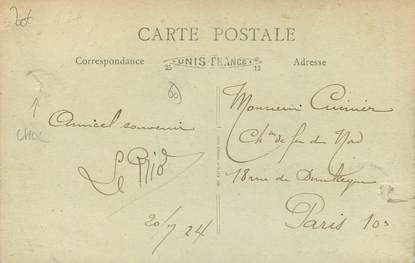 20t
CARTE POSTALE
Correspondance
UNIS-FRANCE
Adresse
Amical souvenir
20/7 24
Monsieur Cuinier
Ch.ins de fer du Nord
18 rue de Dunkerque
Paris 10e
CHOC